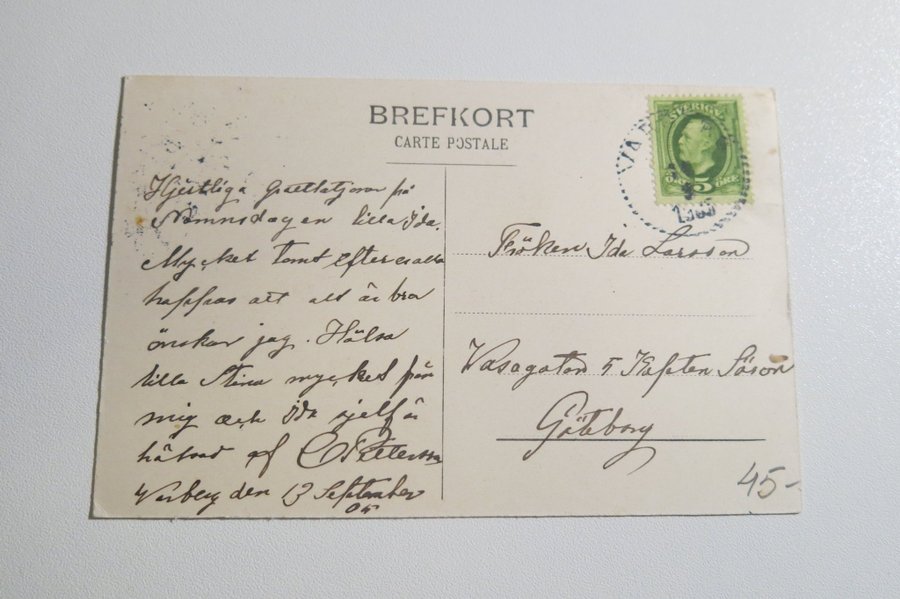 BREFKORT
CARTE POSTALE
SVERIGE
5 ÖRE
1905
Hjertliga gratulationer på
Namnsdagen lilla Ida.
Mycket tomt efter eder alla
hoppas att allt är bra
önskar jag. Hälsa
lilla Stina mycket från
mig och Ida sjelf är
hälsad af C Pettersson
Warberg den 13 September
05
Fröken Ida Larsson
Vasagatan 5 Kapten
Göteborg
45-